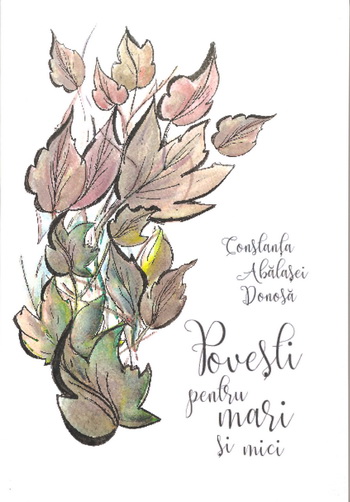 Constanța
Abălașei
Donosă
Povești
pentru
mari
și mici